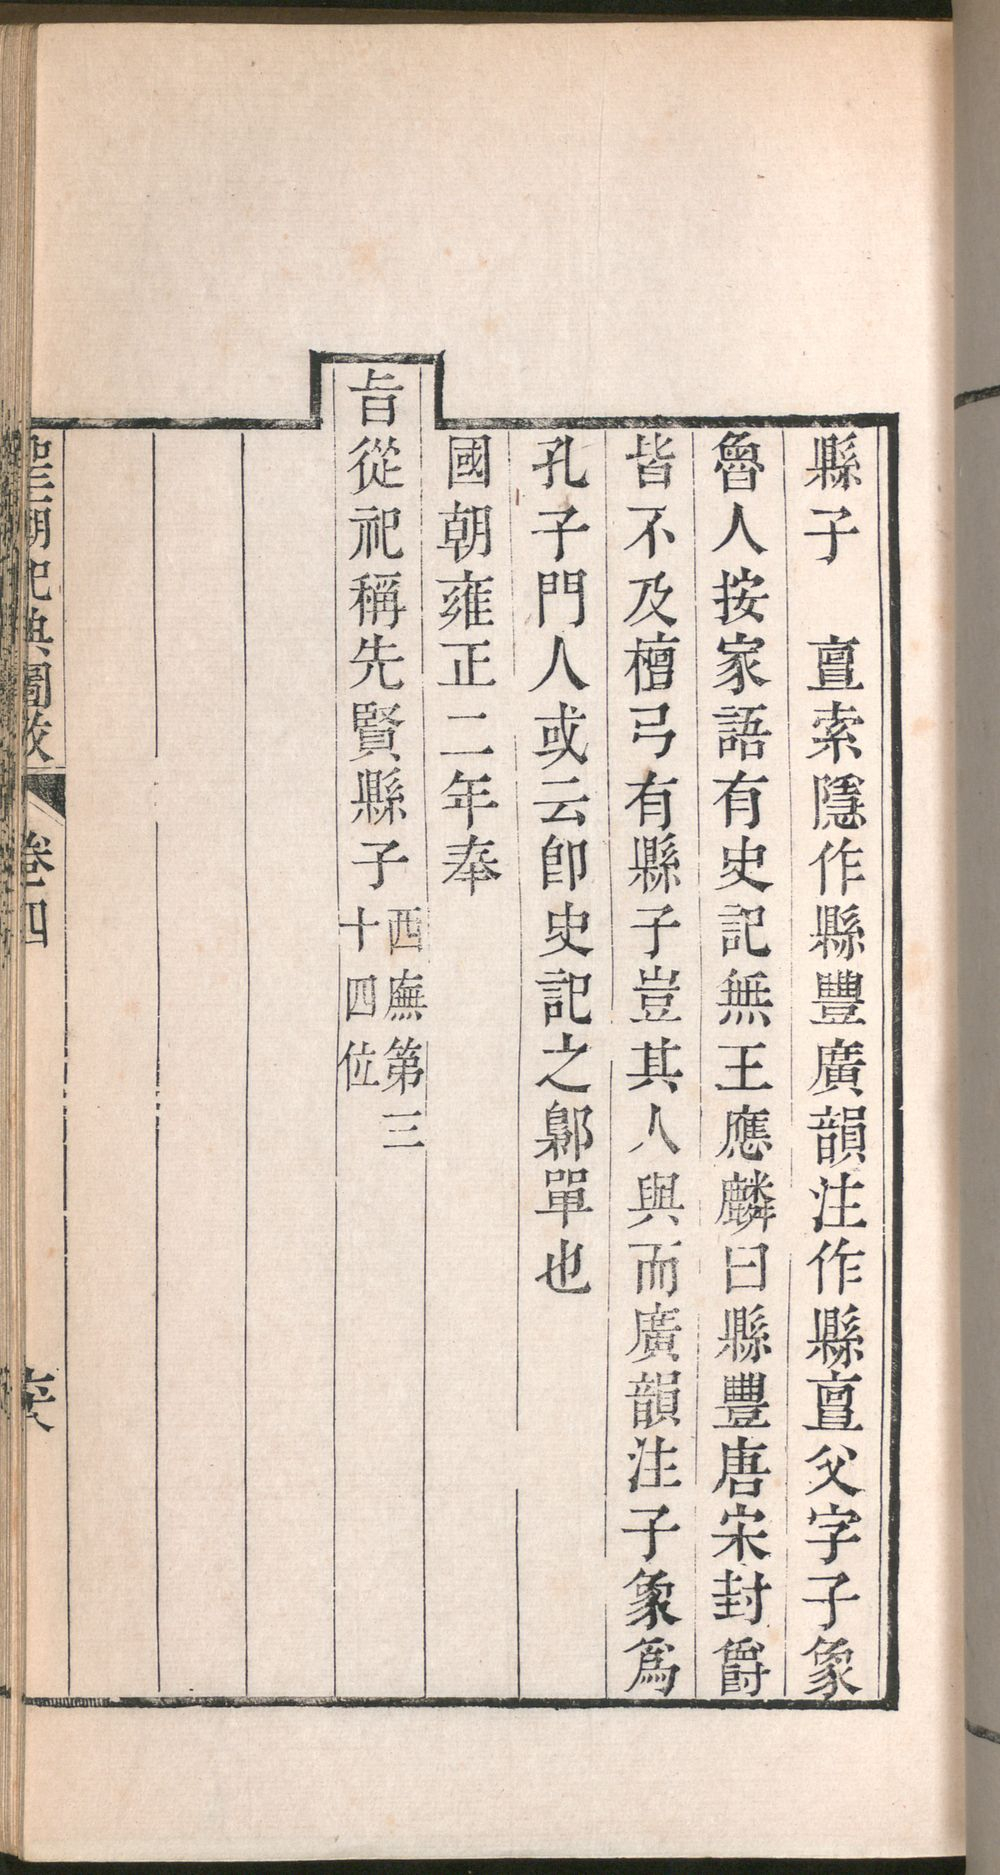 縣子　亶索隱作縣豐廣韻注作縣亶父字子象
魯人按家語有史記無王應麟曰縣豐唐宋封爵
皆不及檀弓有縣子豈其人與而廣韻注子象爲
孔子門人或云卽史記之鄡單也
國朝雍正二年奉
旨從祀稱先賢縣子
西廡第三
十四位
聖朝祀典圖攷
卷四